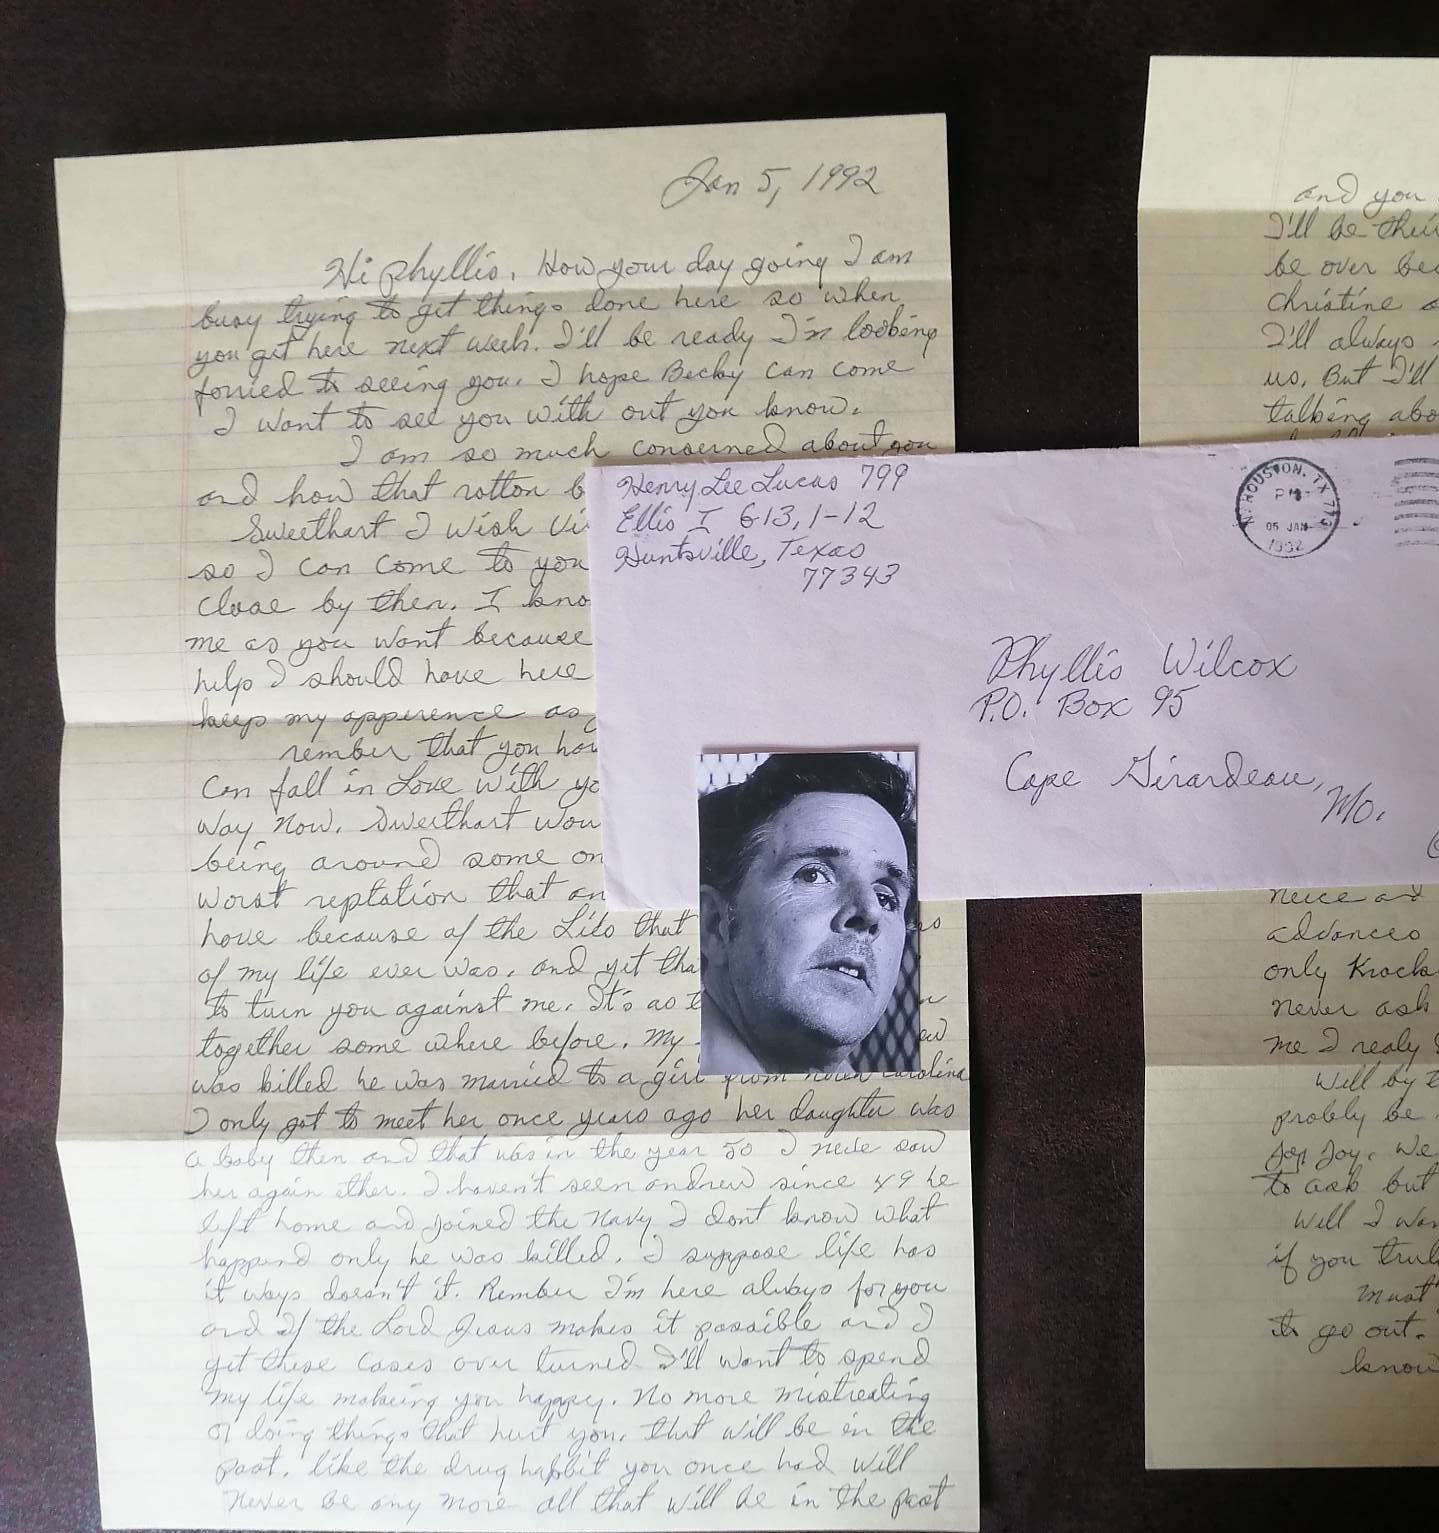 Jan 5, 1992
Hi Phyllis. How your day going I am
busy trying to get things done here so when
you get here next week. I'll be ready I'm looking
forred to seeing you. I hope Becky can come
I want to see you with out you know.
I am so much conserned about you
and how that rotton b
Sweethart I wish Vi
so I can come to you
close by then. I kno
me as you want because
help I should have here
keep my apperence as
rember that you hav
Can fall in Love with yo
way Now. Sweethart wou
being around some on
worst reptation that an
have because of the Lies that
of my life ever was. and yet tha
to turn you against me. It's as t
together some where before. My
was killed he was married to a girl from North Carolina
I only got to meet her once years ago her daughter was
a baby then and that was in the year 50 I neve saw
her again ether. I haven't seen andrew since 49 he
left home and joined the Navy I dont know what
happend only he was killed. I suppose life has
it ways doesn't it. Rember I'm here always for you
and if the Lord Jesus makes it possible and I
get these cases over turned I'll want to spend
my life makeing you happy. No more mistreating
or doing things that hurt you. that will be in the
past. like the drug habbit you once had will
Never be any more all that will be in the past
Henry Lee Lucas 799
Ellis I G13, 1-12
Huntsville, Texas
77343
N. HOUSTON, TX 773
PM
05 JAN
1992
Phyllis Wilcox
P.O. Box 95
Cape Girardeau,
Mo.
and you
I'll be their
be over bec
christine a
I'll always
us. But I'll
talking abo
neice and
advances
only Knock
never ask
me I realy
Will by t
probely be
for Joy. We
to ask but
Well I wan
if you trul
Must
to go out.
know